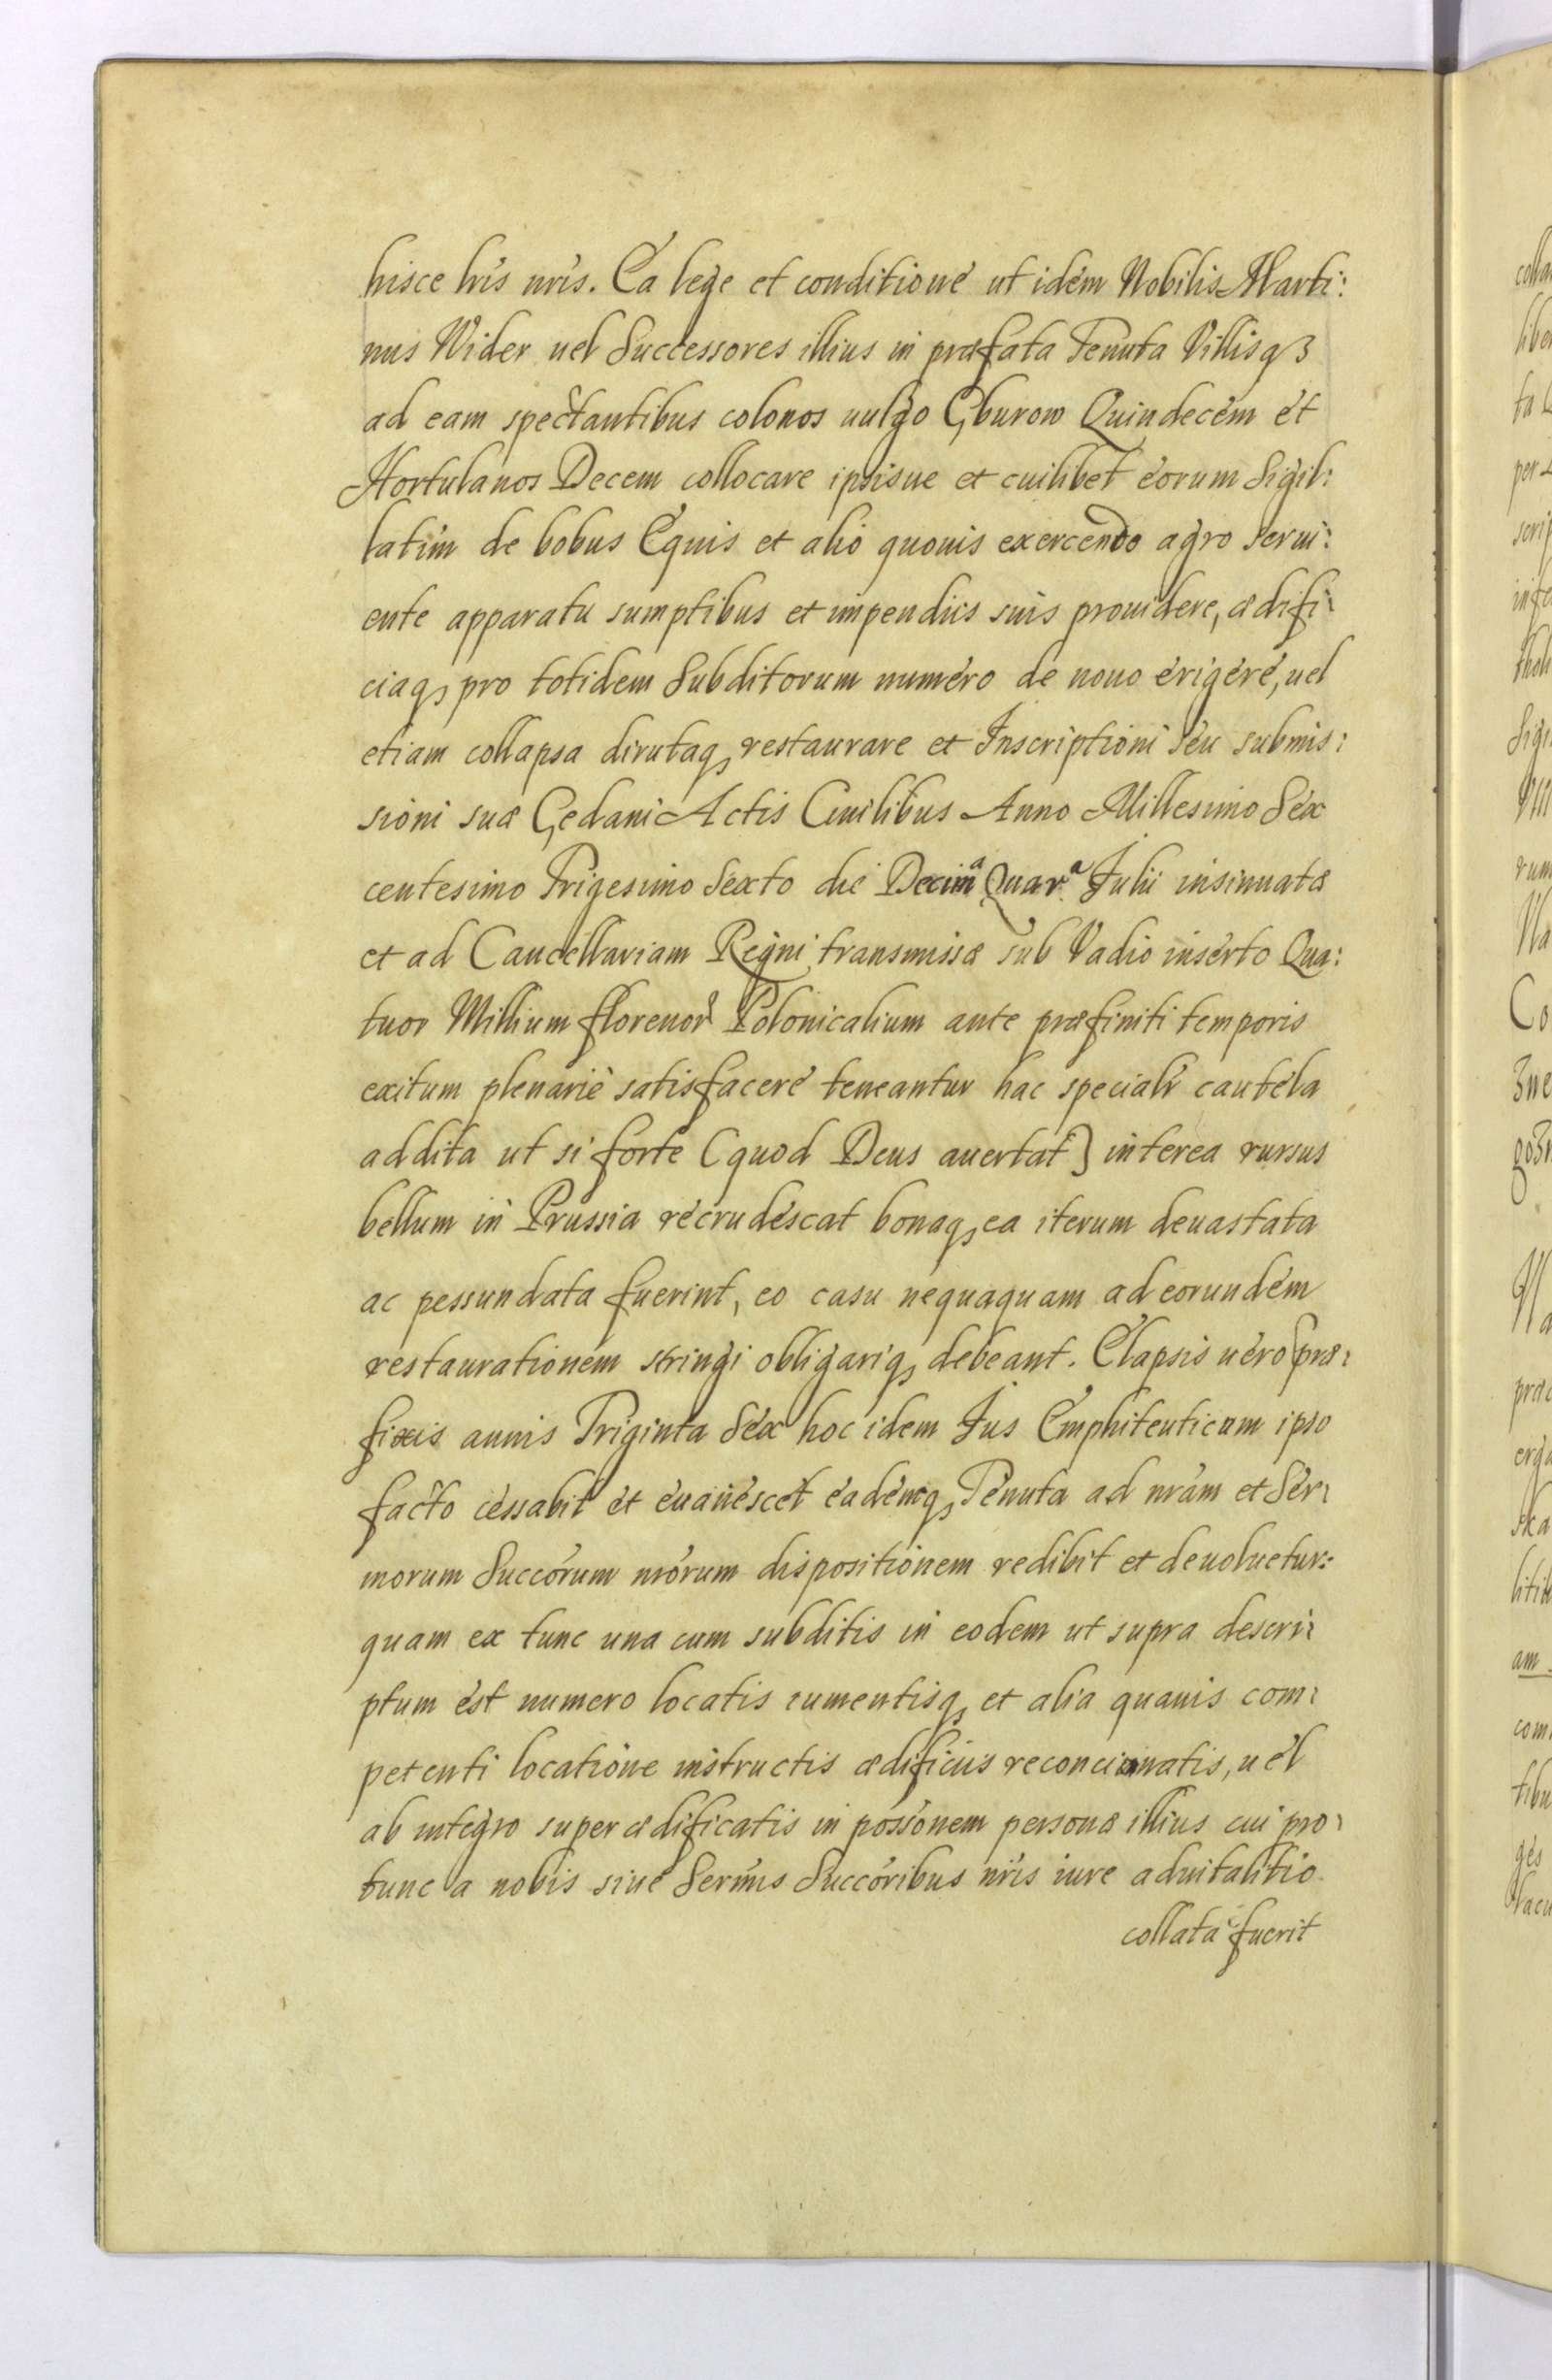 hisce lris nris. Ea lege et conditione ut idem Nobilis Marti:
nus Wider uel Successores illius in præfata Tenuta Villisqȝ
ad eam spectantibus colonos uulgo Gburow Quindecem et
Hortulanos Decem collocare ipsisue et cuilibet eorum Sigil:
latim de bobus Equis et alio quouis exercendo agro serui:
ente apparatu sumptibus et impendiis suis prouidere, ædifi:
ciaqꝫ pro totidem Subditorum numero de nouo erigere, uel
etiam collapsa dirutaqꝫ restaurare et Inscriptioni seu submis:
sioni suæ Gedani Actis Ciuilibus Anno Millesimo Sex
centesimo Trigesimo Sexto die Decimᵃ Quar.ᵃ Julii insinuatæ
et ad Cancellariam Regni transmissæ sub Vadio inserto Qua:
tuor Millium florenor Polonicalium ante præfiniti temporis
exitum plenariè satisfacere teneantur hac speciali cautela
addita ut si forte (quod Deus auertat) interea rursus
bellum in Prussia recrudescat bonaqꝫ ea iterum deuastata
ac pessundata fuerint, eo casu nequaquam ad eorundem
restaurationem stringi obligariqꝫ debeant. Elapsis uero præ:
fixis annis Triginta Sex hoc idem Jus Emphiteuticum ipso
facto cessabit et euanescet eademqꝫ Tenuta ad nram et Ser:
morum Succorum nrorum dispositionem redibit et deuoluetur:
quam ex tunc una cum subditis in eodem ut supra descri:
ptum est numero locatis iumentisqꝫ et alia quauis com:
petenti locatione instructis ædificiis reconcinnatis, uel
ab integro superædificatis in possonem personæ illius cui pro:
tunc a nobis siue Sermis Succoribus nris iure aduitalitio
collata fuerit